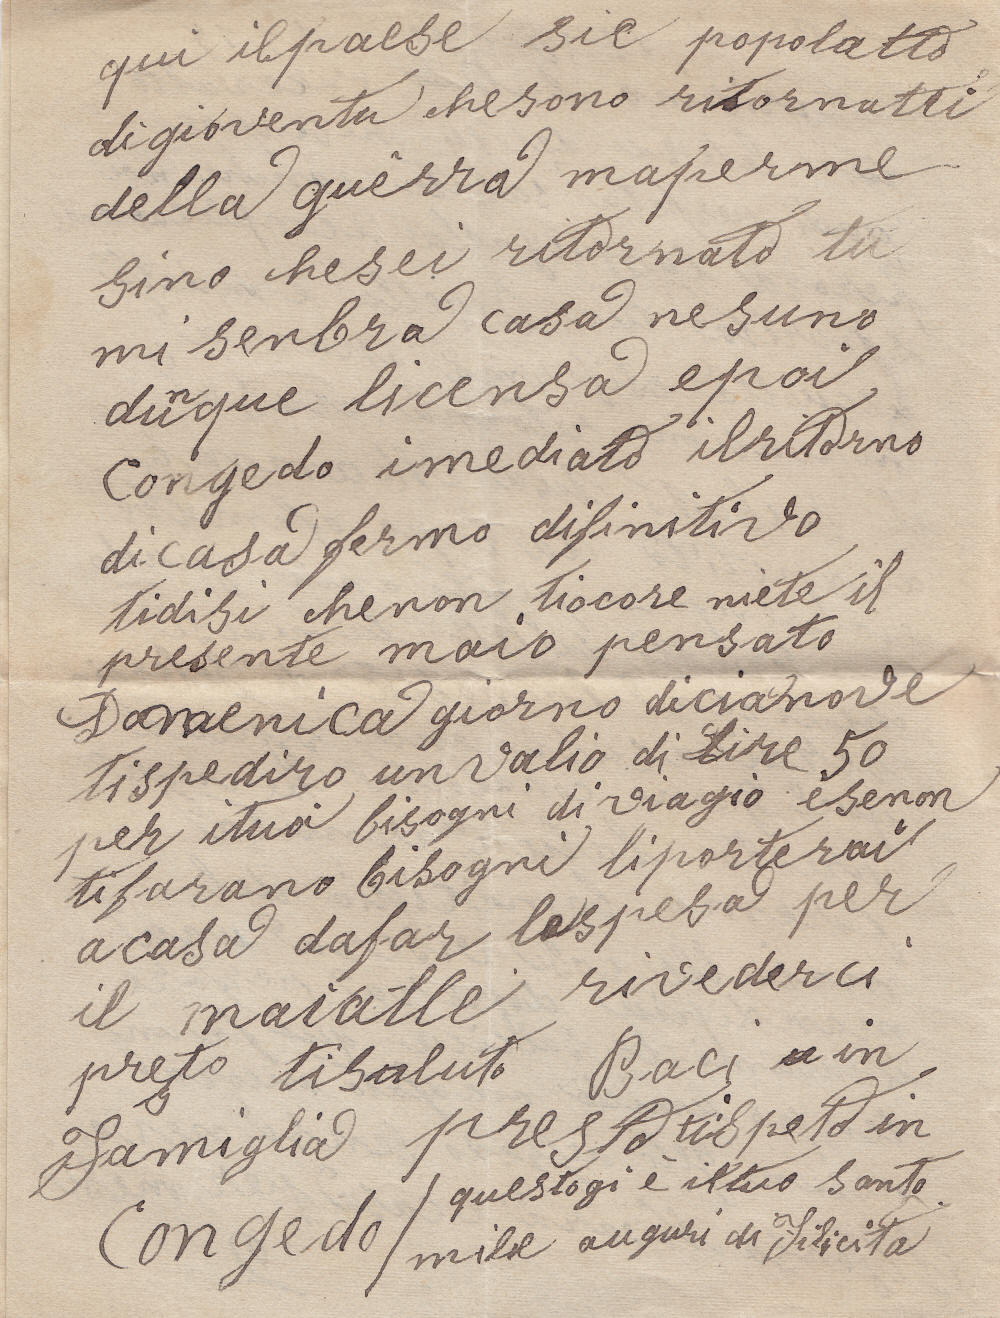 qui ilpaese sie popolatto
digioventu chesono ritornatti
della guerra maperme
sino chesei ritornato tu
mi senbra casa nesuno
dunque licensa epoi
Congedo imediato ilritorno
dicasa fermo difinitivo
tidisi chenon tiocore niete il
presente maio pensato
Domenica giorno dicianove
tispediro unvalio di Lire 50
per ituoi bisogni diviagio esenon
tifarano bisogni liporterai
acasa dafar laspesa per
il maialle rivederci
presto tisaluto Baci in
Famiglia presto tispeto in
Congedo / questogi è iltuo santo
mile auguri di Filicita